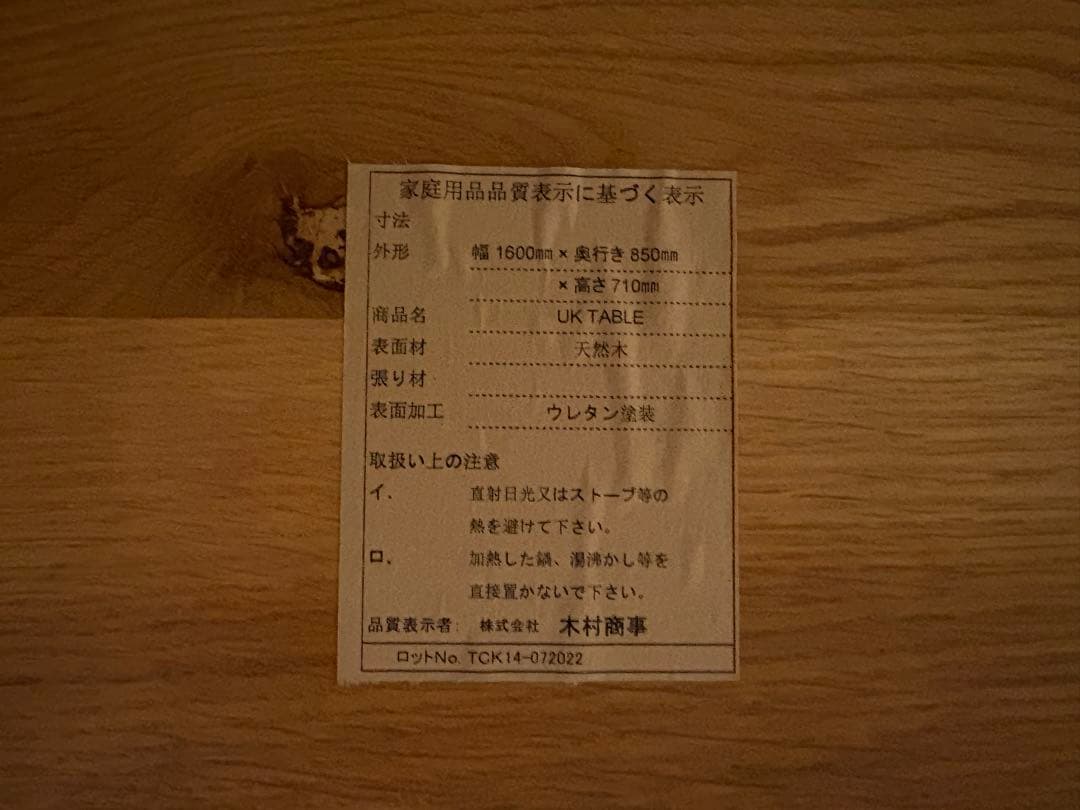 家庭用品品質表示に基づく表示
寸法
外形 幅 1600㎜ × 奥行き 850㎜
× 高さ 710㎜
商品名 UK TABLE
表面材 天然木
張り材
表面加工 ウレタン塗装
取扱い上の注意
イ、 直射日光又はストーブ等の
熱を避けて下さい。
ロ、 加熱した鍋、湯沸かし等を
直接置かないで下さい。
品質表示者: 株式会社 木村商事
ロットNo. TCK14-072022